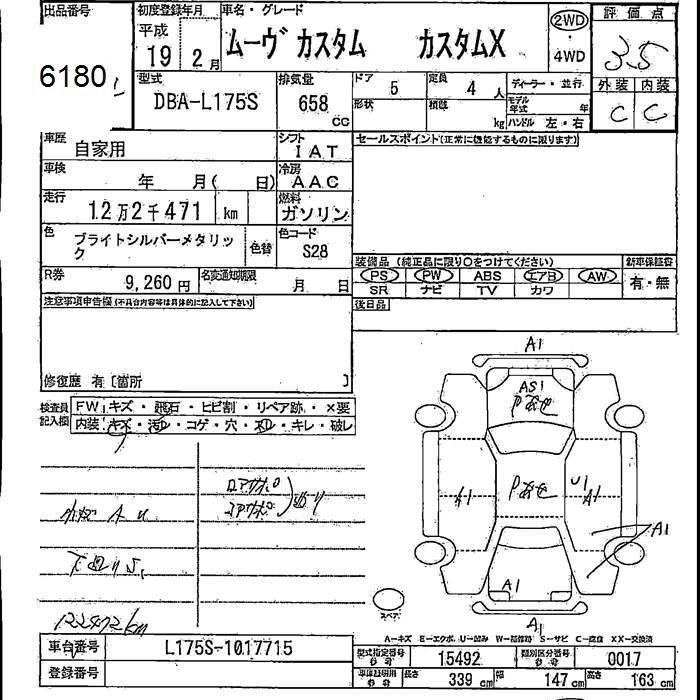 出品番号 初度登録年月 車名・グレード 2WD 評価点
平成 19年 2月 ムーヴ カスタム カスタムX 4WD 3.5
6180
型式 排気量 ドア 5 定員 4人 ディーラー・並行 外装 内装
DBA-L175S 658cc 形状 積載 kg モデル年式 年 C C
ハンドル 左・右
車歴 自家用 シフト IAT セールスポイント(正常に機能するものに限ります)
車検 年 月( 日) 冷房 AAC
走行 12万2千471 km 燃料 ガソリン
色 ブライトシルバーメタリック 色替 色コード S28
装備品 (純正品に限り○をつけてください) 新車保証書
R券 9,260円 名変通知期限 月 日 PS PW ABS エアB AW 有・無
SR ナビ TV カワ
注意事項申告欄(不具合内容等は具体的に記入して下さい) 後日品
修復歴 有〔箇所 〕
検査員記入欄 FW キズ・飛石・ヒビ割・リペア跡・×要
内装 キズ・汚れ・コゲ・穴・スレ・キレ・破レ
A1
AS1
A1 U1 A1
A1
A1
A1
スペア
122472km
A-キズ E-エクボ U-凹み W-補修跡 S-サビ C-腐蝕 XX-交換済
車台番号 L175S-1017715 型式指定番号 15492 類別区分番号 0017
登録番号 車庫証明用参考 長さ 339cm 幅 147cm 高さ 163cm